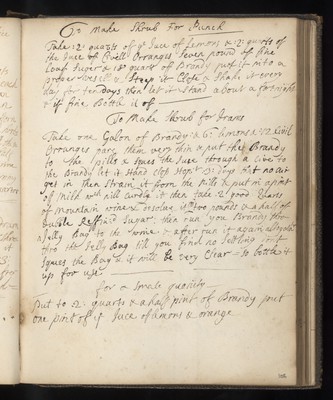 To Make Shrub For Punch
Take 12 quarts of ye Juce of Lemons & 12 quarts of
the Juce of Civill Orranges Seven pound of fine
Loaf Suger & 18 quarts of Brandy put it into a
proper Vessell & Stopp it Close & Shake it every
day for ten Days then let it Stand about a fortnight
& if fine Bottle it of
To Make Shrub for Drams
Take one Galon of Brandy & 6 Limons & 12 Civil
Orranges pare them very thin & put the Brandy
to the pills & squees the Juce through a Cive to
the Brandy let it stand clos stopt 3 Days that no air
get in then strain it from the pills & put in a pint
of milk wch will curdle it then take 2 good
of mountain wine & disolve in two pounds & a half of
Duble Refind Sugar then run ye Brandy thro
a Jelly Bag to the wine & after run it again several
thro the Jelly Bag till you find no Setling don't
squees the Bag & it will be very Clear so bottle it
up for use
for a Small quantity
put to 2 quarts & a half pint of Brandy put
one pint of ye Juce of Limons & orange